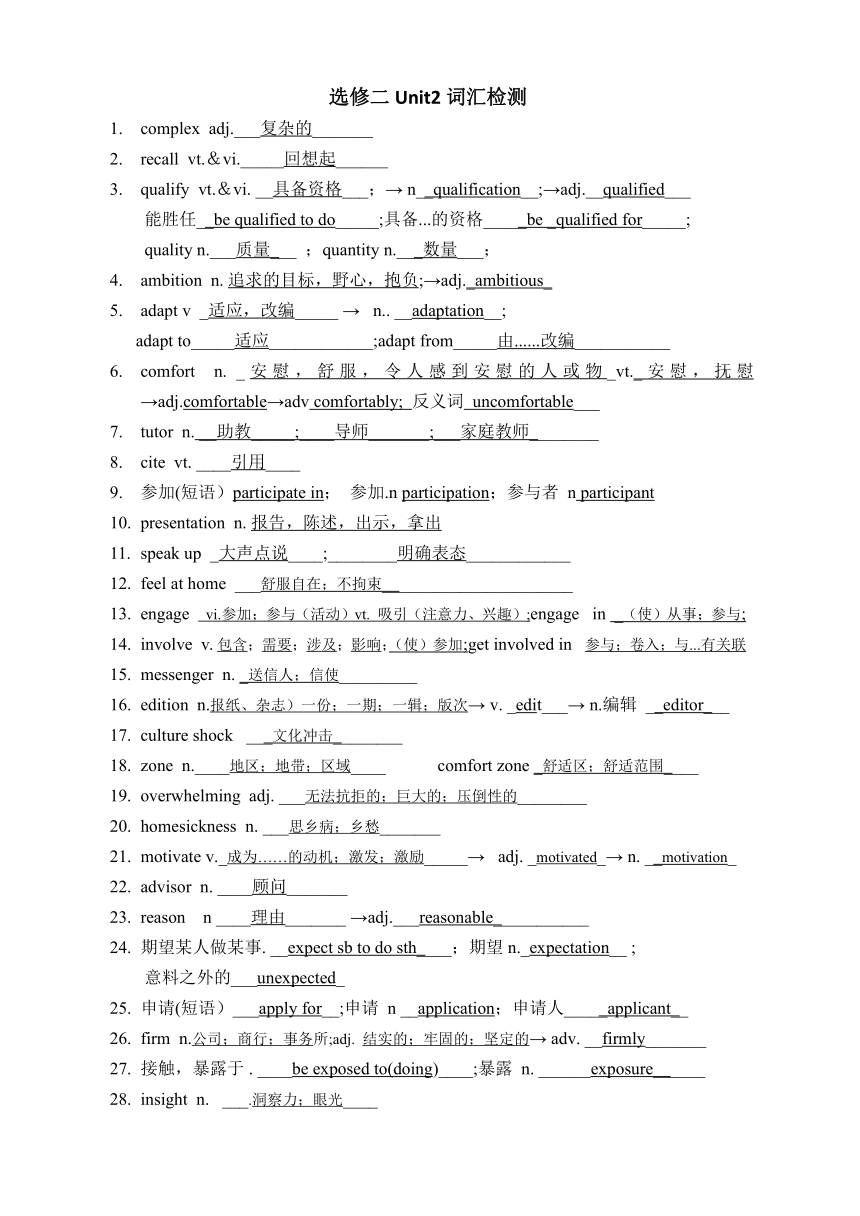 选修二 Unit2 词汇检测
1. complex adj.___复杂的_______
2. recall vt.＆vi._____回想起______
3. qualify vt.＆vi. __具备资格___；→ n__qualification__;→adj.__qualified___
能胜任__be qualified to do_____;具备...的资格_____be _qualified for_____;
quality n.___质量___ ；quantity n.___数量___；
4. ambition n. 追求的目标，野心，抱负;→adj._ambitious_
5. adapt v _适应，改编_____ → n.. __adaptation__;
adapt to_____适应____________;adapt from_____由......改编___________
6. comfort n. _安慰，舒服，令人感到安慰的人或物_vt._安慰，抚慰
→adj.comfortable→adv comfortably; 反义词_uncomfortable___
7. tutor n.___助教_____;____导师_______;___家庭教师________
8. cite vt. ____引用____
9. 参加(短语）participate in； 参加.n participation；参与者 n participant
10. presentation n. 报告，陈述，出示，拿出
11. speak up _大声点说____;________明确表态____________
12. feel at home ___舒服自在；不拘束______________________
13. engage _vi.参加；参与（活动）vt. 吸引（注意力、兴趣）;engage in __（使）从事；参与;
14. involve v. 包含；需要；涉及；影响；（使）参加;get involved in 参与；卷入；与...有关联
15. messenger n. _送信人；信使_________
16. edition n.报纸、杂志）一份；一期；一辑；版次→ v. _edit___→ n.编辑 __editor___
17. culture shock ___文化冲击________
18. zone n.____地区；地带；区域____ comfort zone _舒适区；舒适范围____
19. overwhelming adj. ___无法抗拒的；巨大的；压倒性的________
20. homesickness n. ___思乡病；乡愁_______
21. motivate v._成为……的动机；激发；激励_____→ adj. _motivated_→ n. __motivation_
22. advisor n. ____顾问_______
23. reason n ____理由_______ →adj.___reasonable___________
24. 期望某人做某事. __expect sb to do sth____；期望 n._expectation__ ;
意料之外的___unexpected_
25. 申请(短语）___apply for__;申请 n __application；申请人_____applicant__
26. firm n.公司；商行；事务所;adj. 结实的；牢固的；坚定的→ adv. __firmly_______
27. 接触，暴露于 . ____be exposed to(doing)____;暴露 n. ______exposure______
28. insight n. ___.洞察力；眼光____